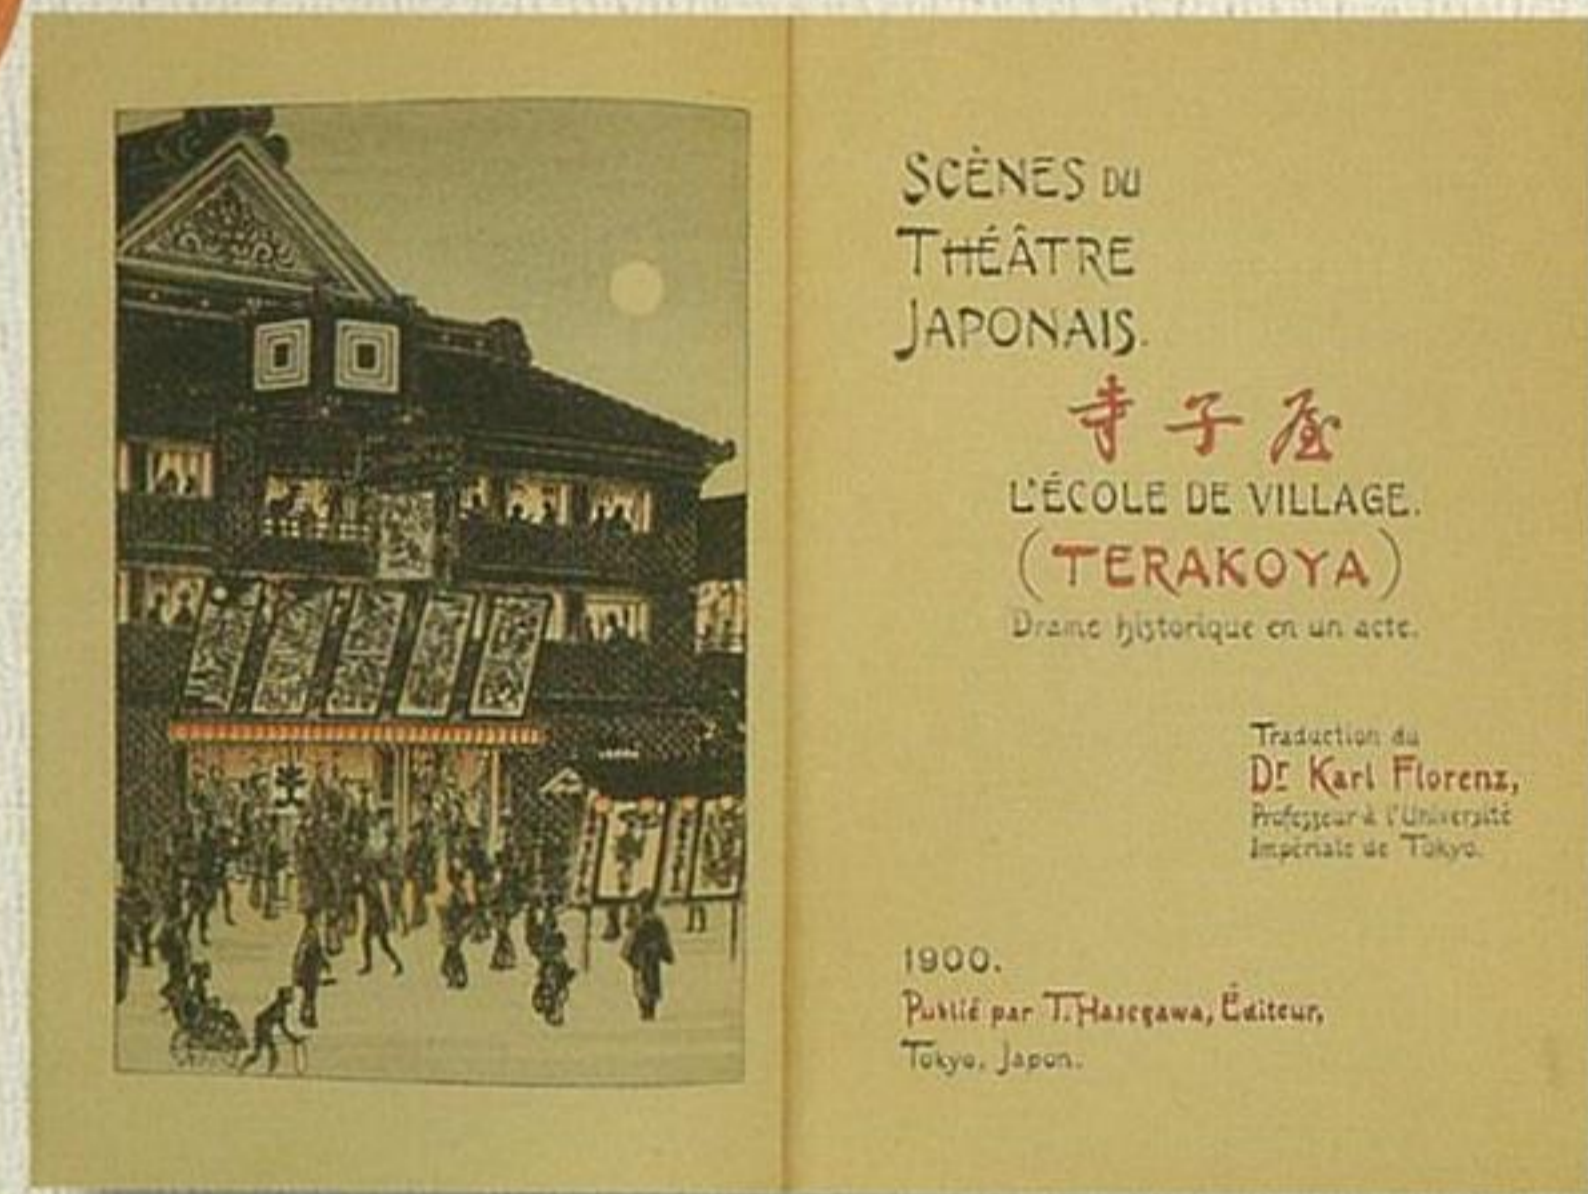 SCÈNES DU
THÉÂTRE
JAPONAIS.
寺子屋
L'ÉCOLE DE VILLAGE.
(TERAKOYA)
Drame historique en un acte.
Traduction du
Dr Karl Florenz,
Professeur à l'Université
Impériale de Tokyo.
1900.
Publié par T. Hasegawa, Éditeur,
Tokyo, Japon.